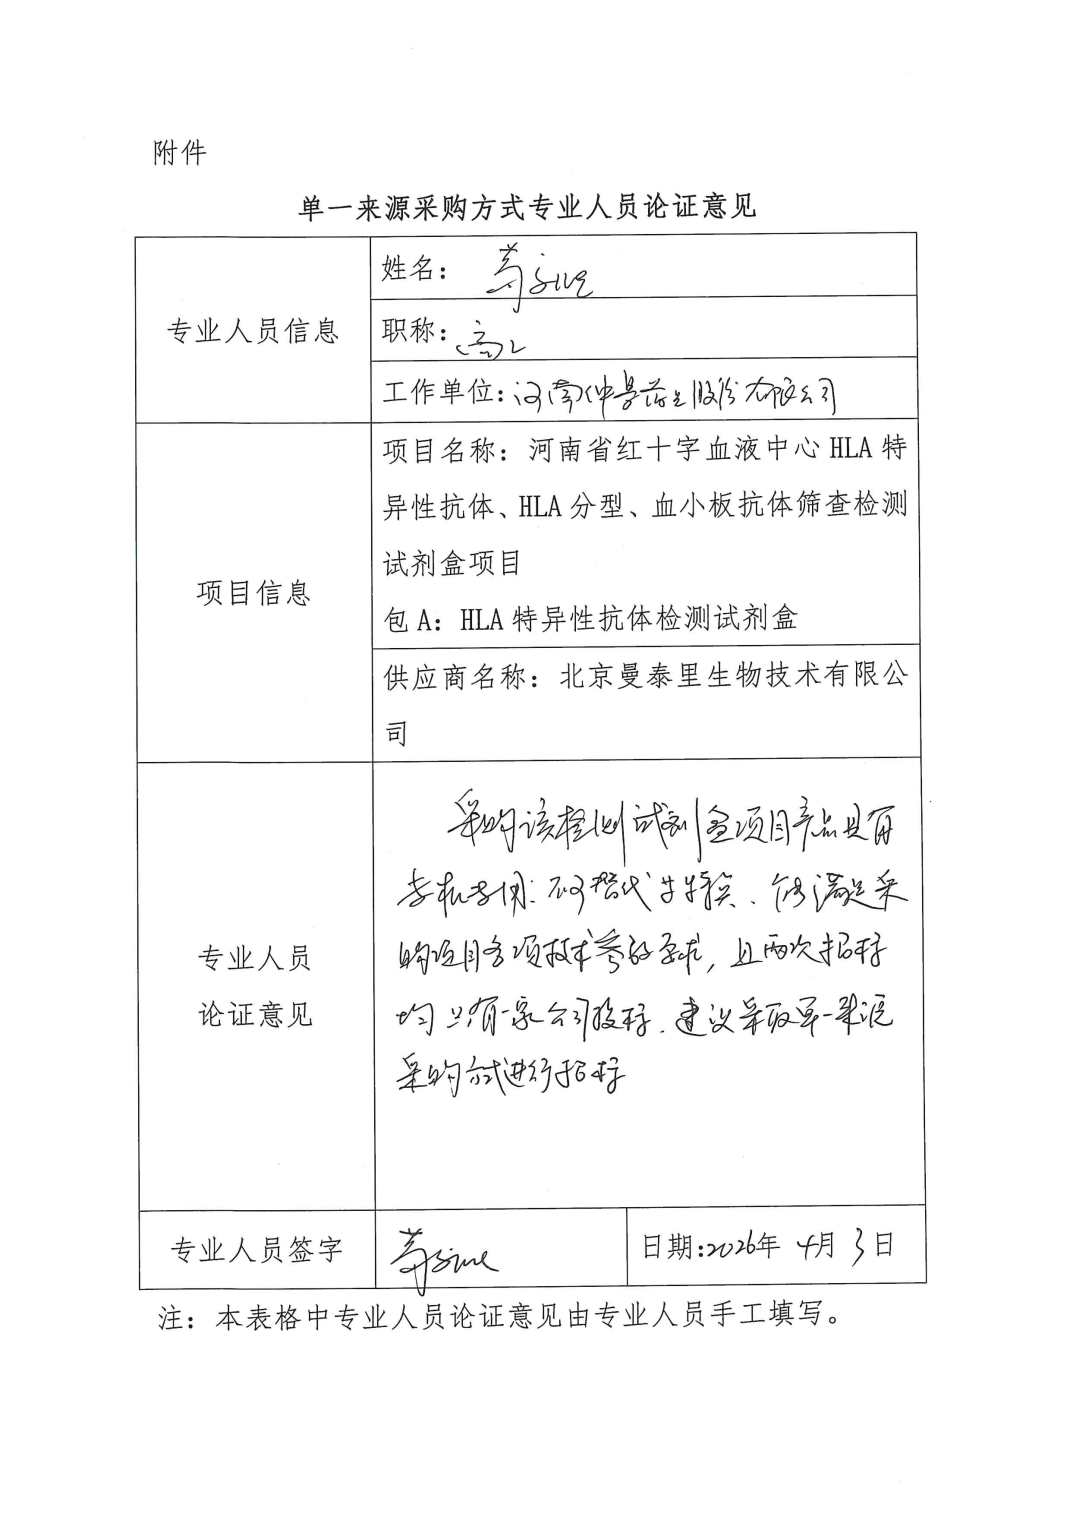 附件
单一来源采购方式专业人员论证意见
专业人员信息
姓名：
职称：高工
工作单位：河南仲景药业股份有限公司
项目信息
项目名称：河南省红十字血液中心 HLA 特
异性抗体、HLA 分型、血小板抗体筛查检测
试剂盒项目
包 A：HLA 特异性抗体检测试剂盒
供应商名称：北京曼泰里生物技术有限公
司
专业人员
论证意见
采购该检测试剂盒项目产品具有
专机专用、不可替代性特点、能满足采
购项目各项技术参数要求，且两次招标
均只有一家公司投标，建议采取单一来源
采购方式进行招标
专业人员签字
日期:2026年 4月 3日
注：本表格中专业人员论证意见由专业人员手工填写。